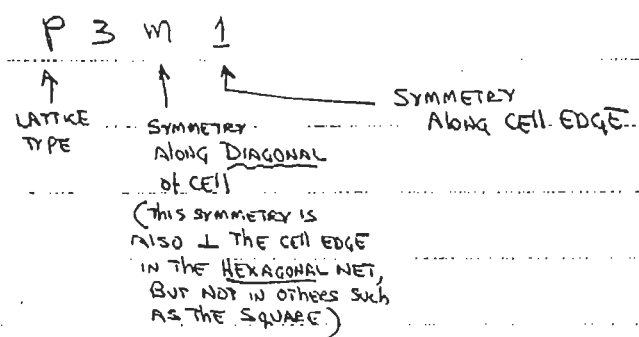 P 3 m 1
LATTICE
TYPE
SYMMETRY
Along DIAGONAL
of CEll
(THIS SYMMETRY IS
Also ⊥ THE CEll EDGE
IN THE HEXAGONAL NET,
BUT NOT IN OTHERS SUCH
AS THE SQUARE)
SYMMETRY
Along CEll EDGE